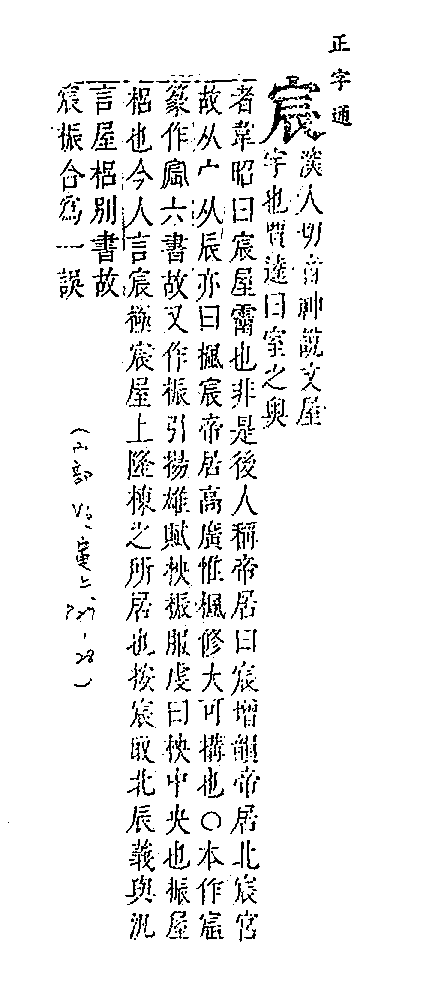 正字通
宸
人切音神說文屋
宇也賈逵曰室之奧
者韋昭曰宸屋霤也非是後人稱帝居曰宸增韻帝居北宸宮
故从宀从辰亦曰楓宸帝居高廣惟楓修大可構也○本作
篆作 六書故又作桭引揚雄賦柍桭服虔曰柍中央也桭屋
梠也今人言宸極宸屋上隆棟之所居也按宸取北辰義與汎
言屋梠別書故
宸桭合爲一誤
(宀部 寅上 P27-28)